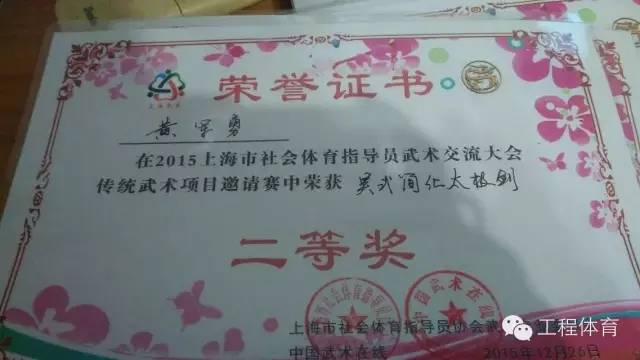 荣誉证书
黄军勇
在2015上海市社会体育指导员武术交流大会
传统武术项目邀请赛中荣获 吴式简化太极剑
二等奖
上海市社会体育指导员协会武
中国武术在线
2015年12月26日
工程体育